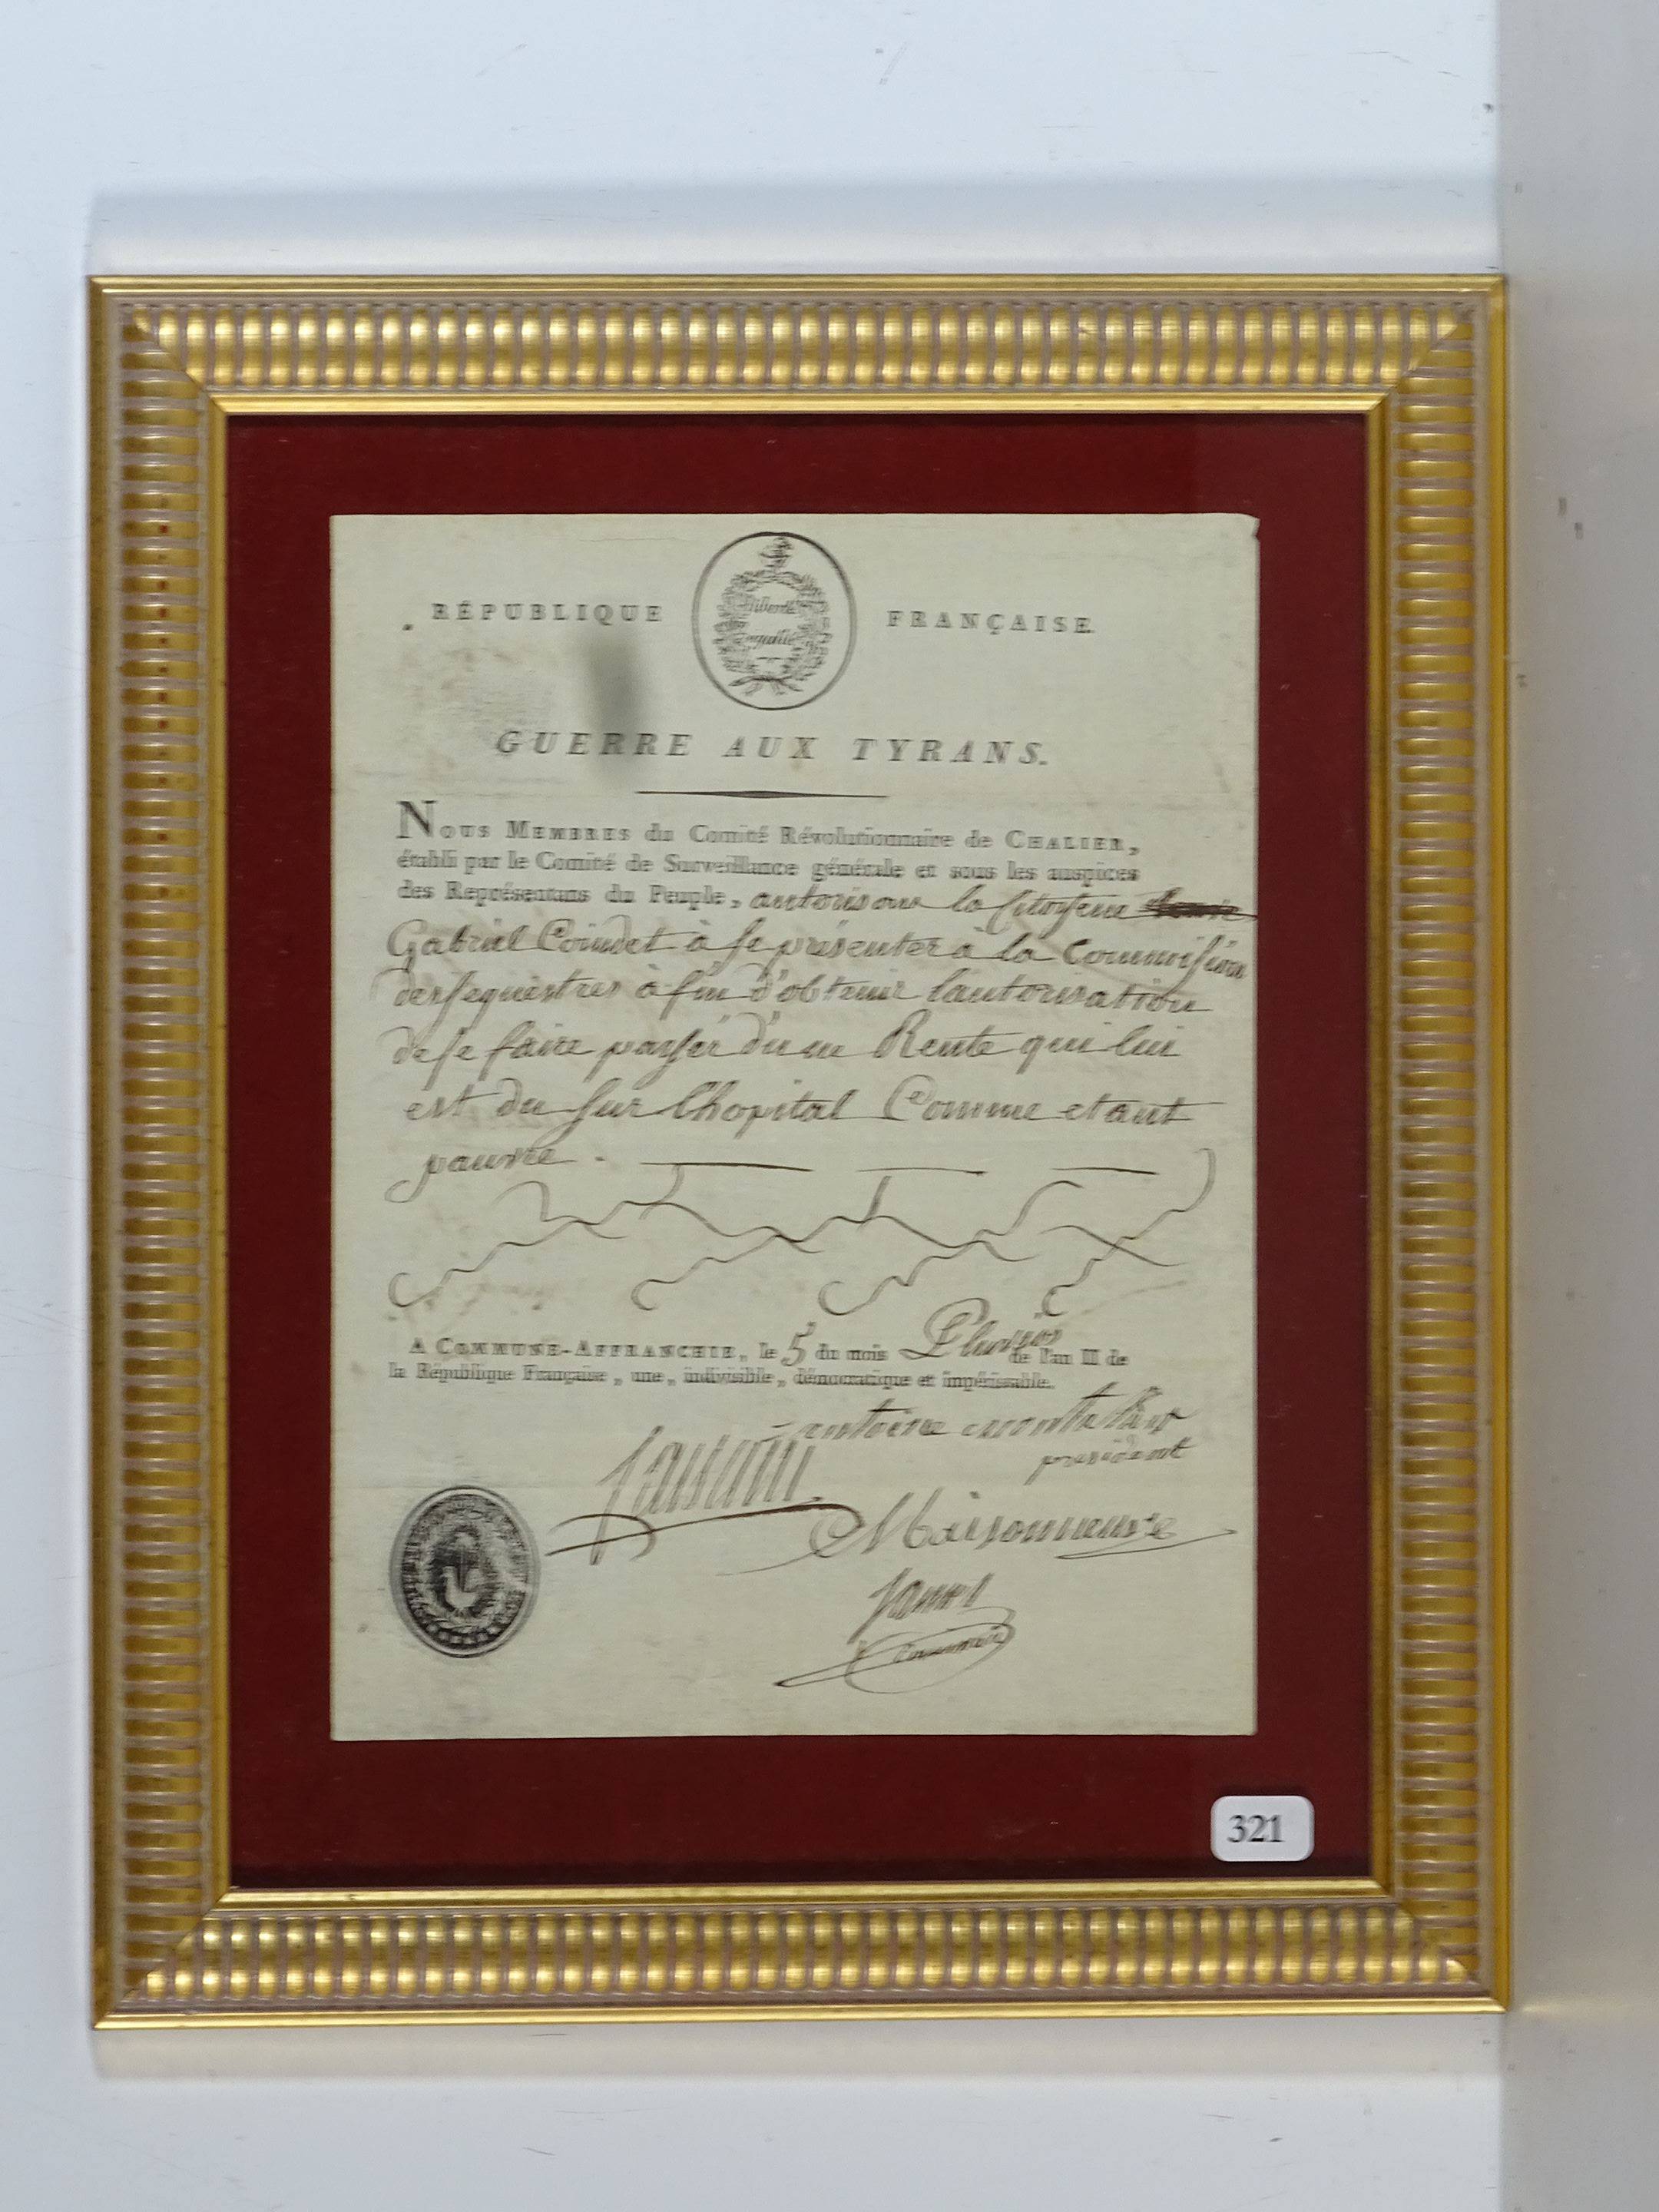 RÉPUBLIQUE FRANÇAISE.
Liberté
Egalité
GUERRE AUX TYRANS.
NOUS MEMBRES du Comité Révolutionnaire de CHALIER,
établi par le Comité de Surveillance générale et sous les auspices
des Représentans du Peuple, autorisons la Citoyene
Gabriel Coindet à se présenter à la Commission
des sequestres à fin d'obtenir lautorisation
de se faire payer d'une Rente qui lui
est du sur l'hopital Comme etant
pauvre.
A COMMUNE-AFFRANCHIE, le 5 du mois Pluvios de l'an II de
la République Française, une, indivisible, démocratique et impérissable.
antoine
president
Maisonneuve
321